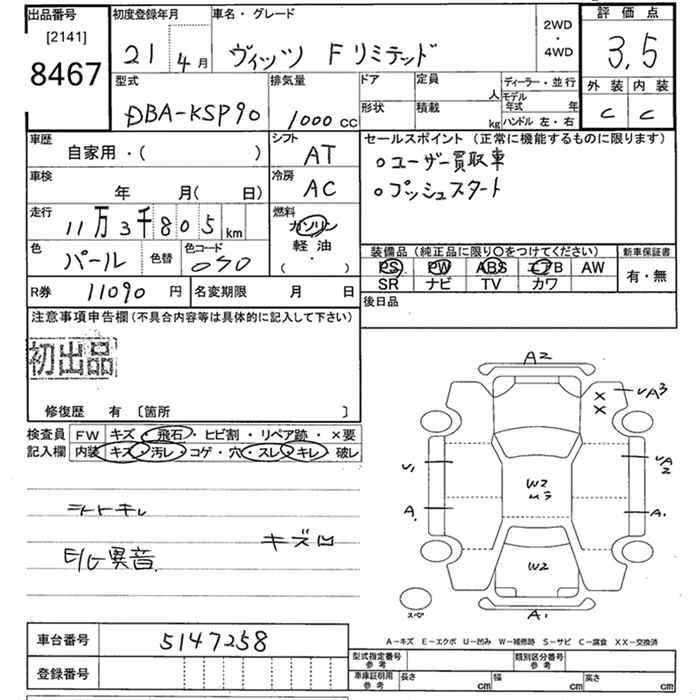 出品番号
[2141]
8467
初度登録年月
21 4月
車名・グレード
ヴィッツ Fリミテッド
2WD
・
4WD
評価点
3,5
外装 内装
C C
型式
DBA-KSP90
排気量
1000cc
ドア
形状
定員
人
積載
kg
ディーラー・並行
モデル年式 年
ハンドル 左・右
車歴
自家用・( )
シフト
AT
車検
年 月( 日)
冷房
AC
走行
11万3千805km
燃料
ガソリン
軽油
( ・ )
色
パール
色替
色コード
070
R券 11090円
名変期限 月 日
セールスポイント(正常に機能するものに限ります)
○ユーザー買取車
○プッシュスタート
装備品(純正品に限り○をつけてください)
PS PW ABS エアB AW
SR ナビ TV カワ
新車保証書
有・無
後日品
注意事項申告欄(不具合内容等は具体的に記入して下さい)
初出品
修復歴 有 〔箇所 〕
検査員
記入欄
FW キズ・飛石・ヒビ割・リペア跡・×要
内装 キズ・汚レ・コゲ・穴・スレ・キレ・破レ
シートキレ
キズ凹
E/G異音
A2
UA3
X
X
U1
UA2
W2
ムラ
A1
A1
W2
A1
スペ
A-キズ E-エクボ U-凹み W-補修跡 S-サビ C-腐食 XX-交換済
車台番号 5147258
登録番号
型式指定番号
参考
類別区分番号
参考
車庫証明用
参考
長さ cm
幅 cm
高さ cm